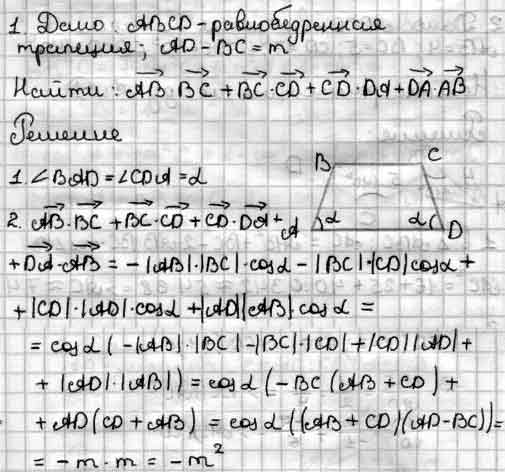 1. Дано: ABCD - равнобедренная
трапеция; AD - BC = m
Найти: AB · BC + BC · CD + CD · DA + DA · AB
Решение
B C
1. ∠BAD = ∠CDA = α
2. AB · BC + BC · CD + CD · DA +
A α α D
+ DA · AB = - |AB| · |BC| · cosα - |BC| · |CD| cosα +
+ |CD| · |AD| · cosα + |AD| |AB| cosα =
= cosα (-|AB| · |BC| - |BC| · |CD| + |CD| |AD| +
+ |AD| · |AB|) = cosα (-BC (AB + CD) +
+ AD (CD + AB) = cosα ((AB + CD)(AD - BC)) =
= - m · m = - m²